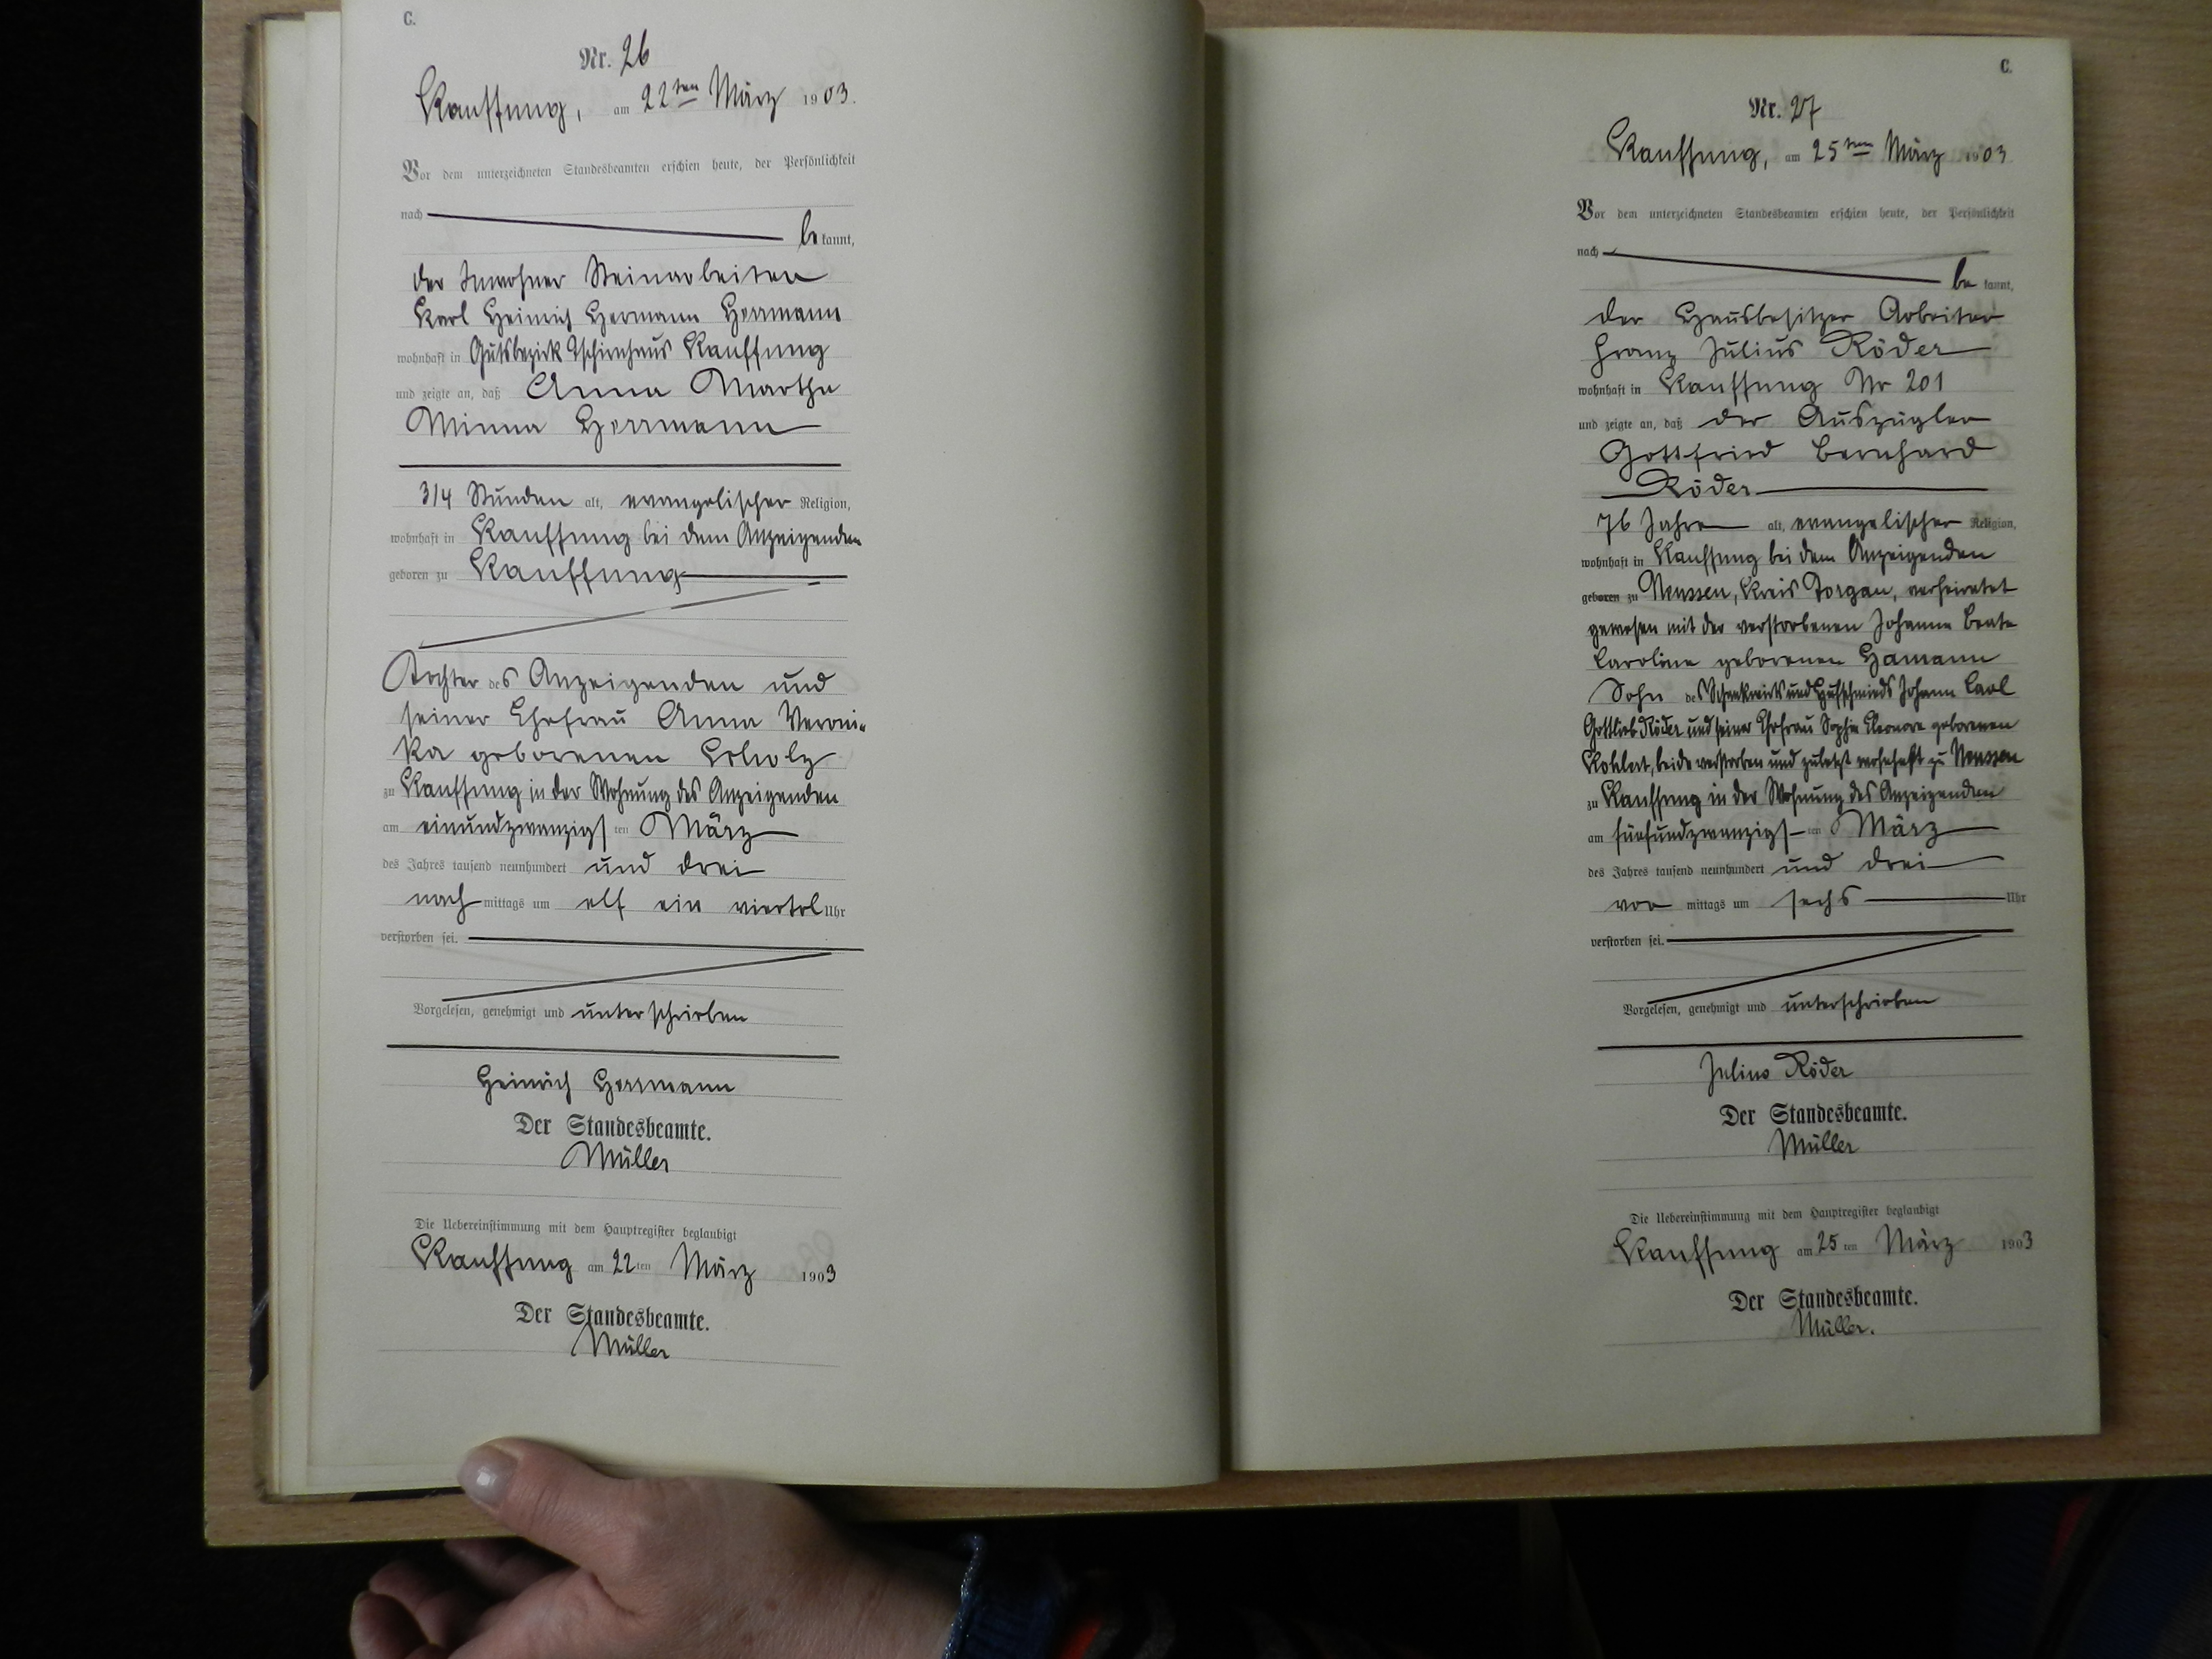 C.
Nr. 26
Kauffung, am 22ten März 1903.
Vor dem unterzeichneten Standesbeamten erschien heute, der Persönlichkeit
nach
be kannt,
der Inwohner Steinarbeiter
Karl Heinrich Hermann Herrmann
wohnhaft in Gutsbezirk Tschirnhaus Kauffung
und zeigte an, daß Anna Martha
Minna Herrmann
3/4 Stunden alt, evangelischer Religion,
wohnhaft in Kauffung bei dem Anzeigenden
geboren zu Kauffung
Tochter des Anzeigenden und
seiner Ehefrau Anna Veroni-
ka geborenen Scholz
zu Kauffung in der Wohnung des Anzeigenden
am einundzwanzigsten März
des Jahres tausend neunhundert und drei
nachmittags um elf ein viertel Uhr
verstorben sei.
Vorgelesen, genehmigt und unterschrieben
Heinrich Herrmann
Der Standesbeamte.
Müller
Die Uebereinstimmung mit dem Hauptregister beglaubigt
Kauffung am 22ten März 1903
Der Standesbeamte.
Müller
C.
Nr. 27
Kauffung, am 25ten März 1903
Vor dem unterzeichneten Standesbeamten erschien heute, der Persönlichkeit
nach
be kannt,
der Hausbesitzer Arbeiter
Franz Julius Röder
wohnhaft in Kauffung Nr 201
und zeigte an, daß der Auszügler
Gottfried Bernhard
Röder
76 Jahre alt, evangelischer Religion,
wohnhaft in Kauffung bei dem Anzeigenden
geboren zu Neussen, Kreis Torgau, verheiratet
gewesen mit der verstorbenen Johanne Beate
Caroline geborenen Hamann
Sohn des Schenkwirts und Hufschmieds Johann Carl
Gottlieb Röder und seiner Ehefrau Sophie Eleonore geborenen
beide verstorben und zuletzt wohnhaft zu Neussen
zu Kauffung in der Wohnung des Anzeigenden
am fünfundzwanzigsten März
des Jahres tausend neunhundert und drei
vor mittags um sechs Uhr
verstorben sei.
Vorgelesen, genehmigt und unterschrieben
Julius Röder
Der Standesbeamte.
Müller
Die Uebereinstimmung mit dem Hauptregister beglaubigt
Kauffung am 25ten März 1903
Der Standesbeamte.
Müller.